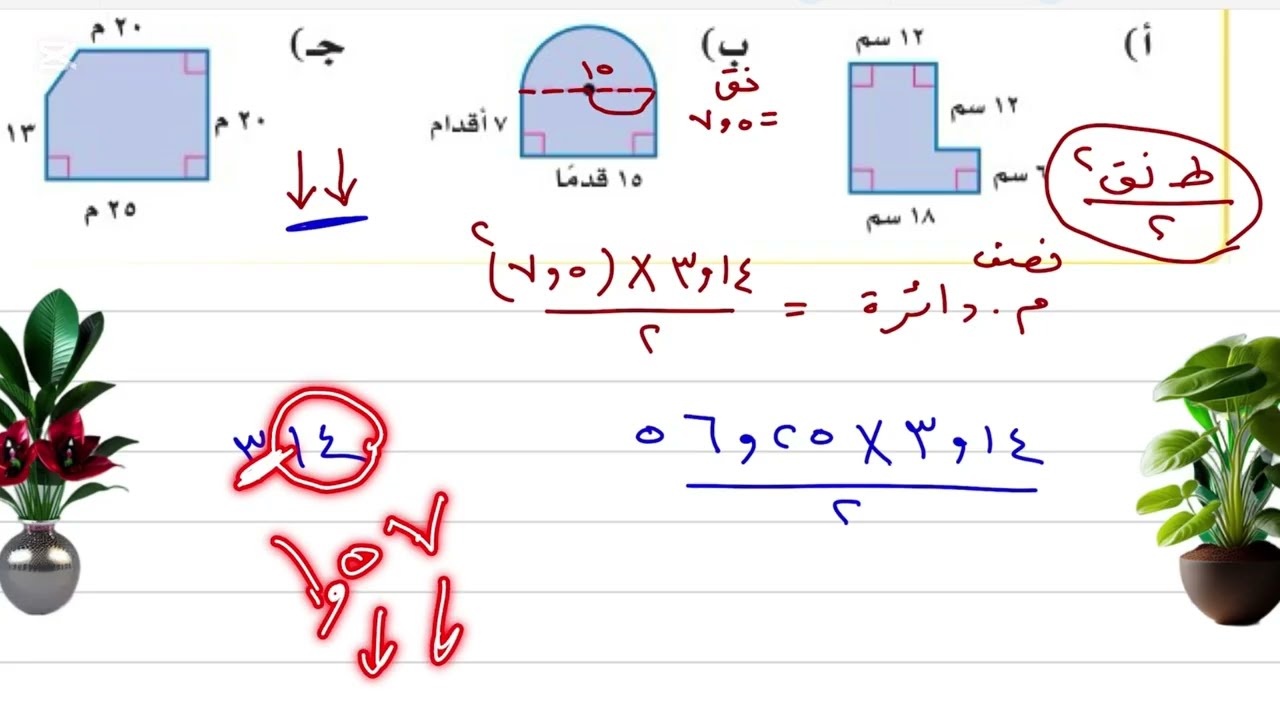 أ)
١٢ سم
١٢ سم
٦ سم
١٨ سم
ب)
١٥
نق
= ٧,٥
٧ أقدام
١٥ قدمًا
جـ)
٢٠ م
٢٠ م
١٣
٢٥ م
ط نق٢
٢
نصف
م. دائرة = ٣,١٤ × (٧,٥)٢
٢
٣,١٤ × ٥٦,٢٥
٢
٣١٤
١,٥٧